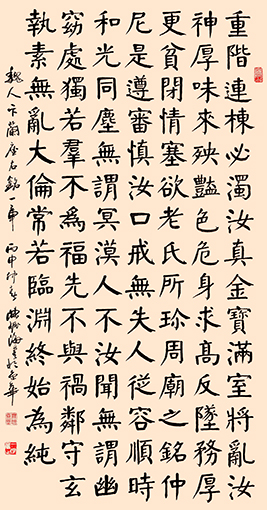 重階連棟必濁汝真金寶滿室將亂汝
神厚味來殃豔色危身求高反墜務厚
更貧閉情塞欲老氏所珍周廟之銘仲
尼是遵審慎汝口戒無失人從容順時
和光同塵無謂冥漠人不汝聞無謂幽
窈處獨若羣不為福先不與禍鄰守玄
執素無亂大倫常若臨淵終始為純
魏人卞蘭座右銘一章 丙申